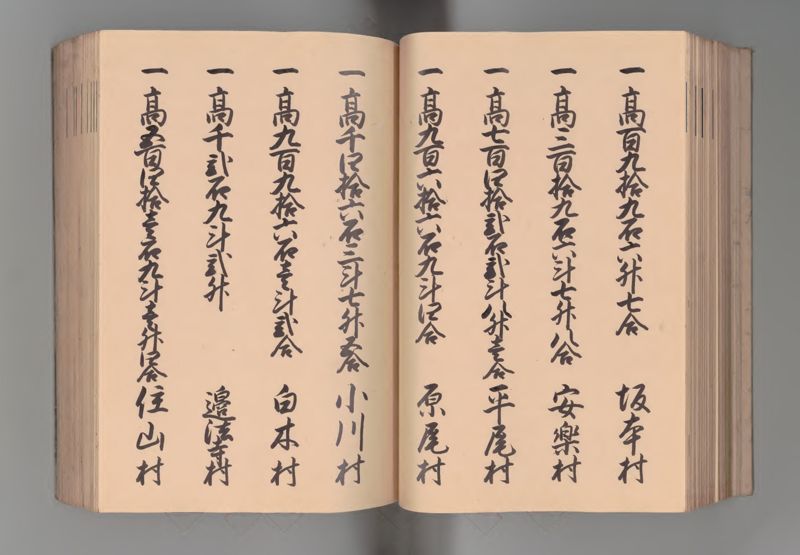 一 高百九拾九石六升七合 坂本村
一 高三百拾九石六斗七升八合 安樂村
一 高七百四拾弐石弐斗八升壱合 平尾村
一 高九百六拾六石九斗四合 原尾村
一 高千四拾六石三斗七升五合 小川村
一 高九百九拾六石壱斗弐合 白木村
一 高千弐石九斗弐升 邉法寺村
一 高五百四拾壱石九斗壱升四合 住山村